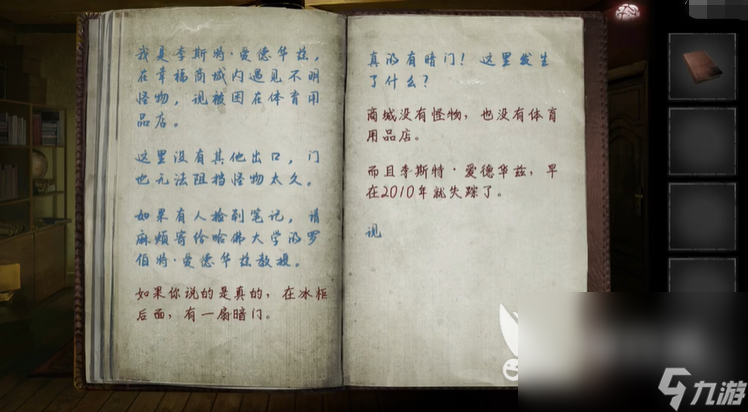 我是李斯特·爱德华兹，
在幸福商城内遇见不明
怪物，现被困在体育用
品店。
这里没有其他出口，门
也无法阻挡怪物太久。
如果有人捡到笔记，请
麻烦寄给哈佛大学的罗
伯特·爱德华兹教授。
如果你说的是真的，在冰柜
后面，有一扇暗门。
真的有暗门！这里发生
了什么？
商城没有怪物，也没有体育
用品店。
而且李斯特·爱德华兹，早
在2010年就失踪了。
现
九游